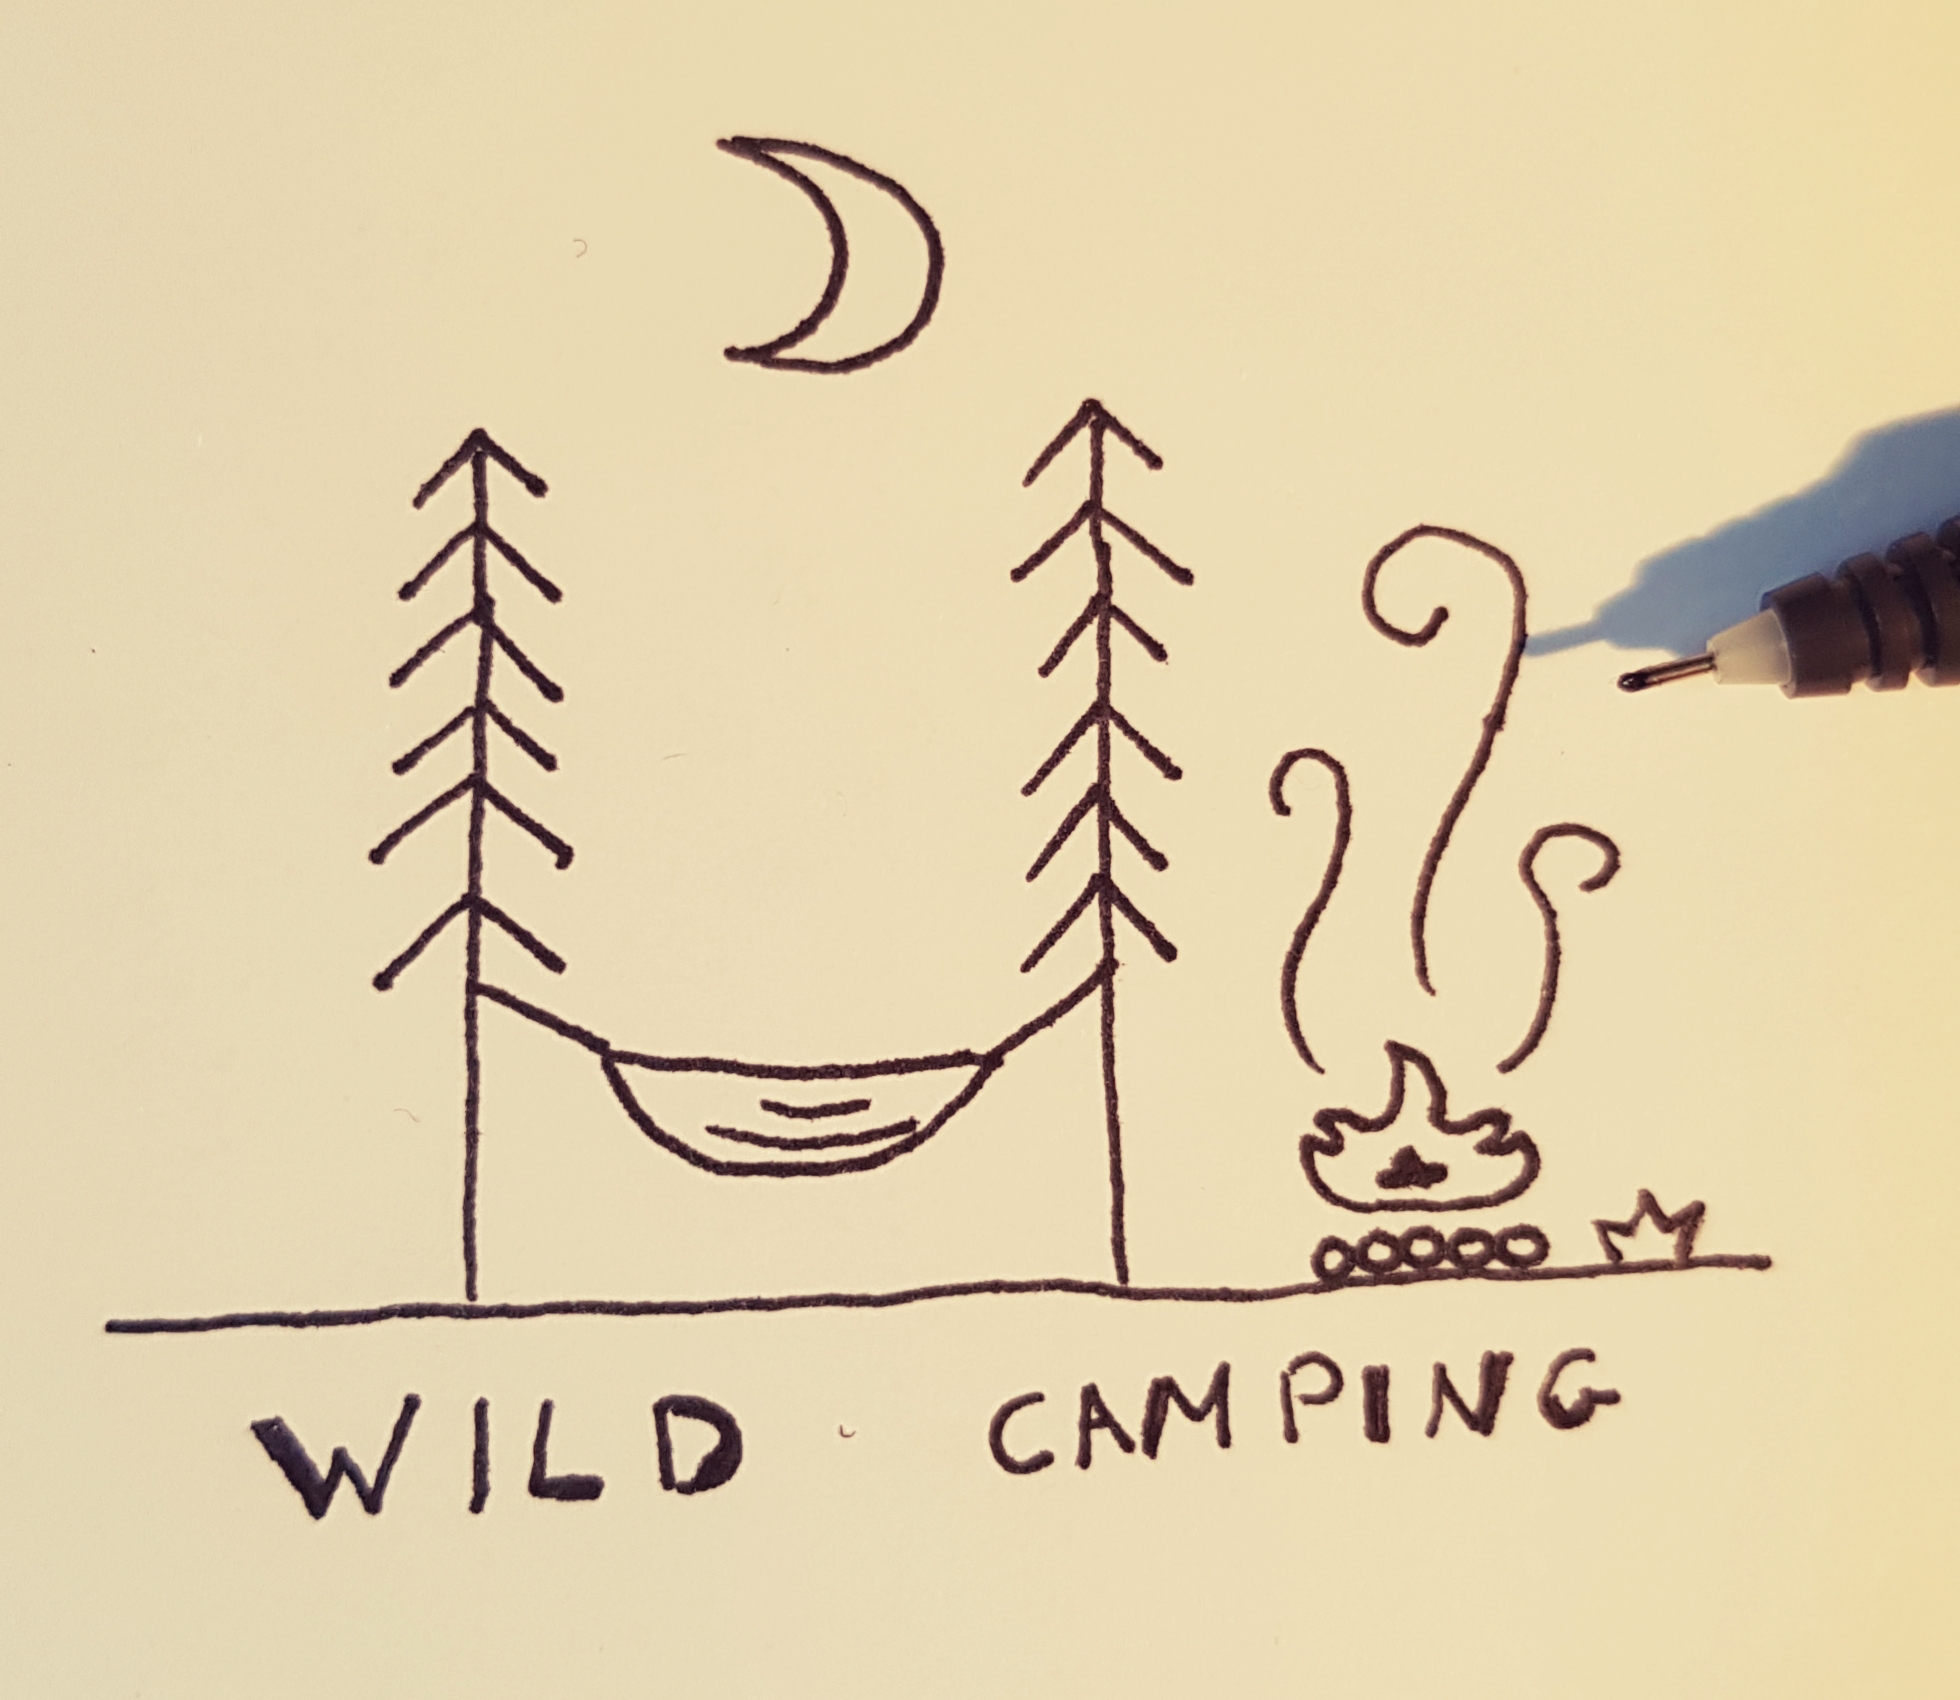 WILD CAMPING